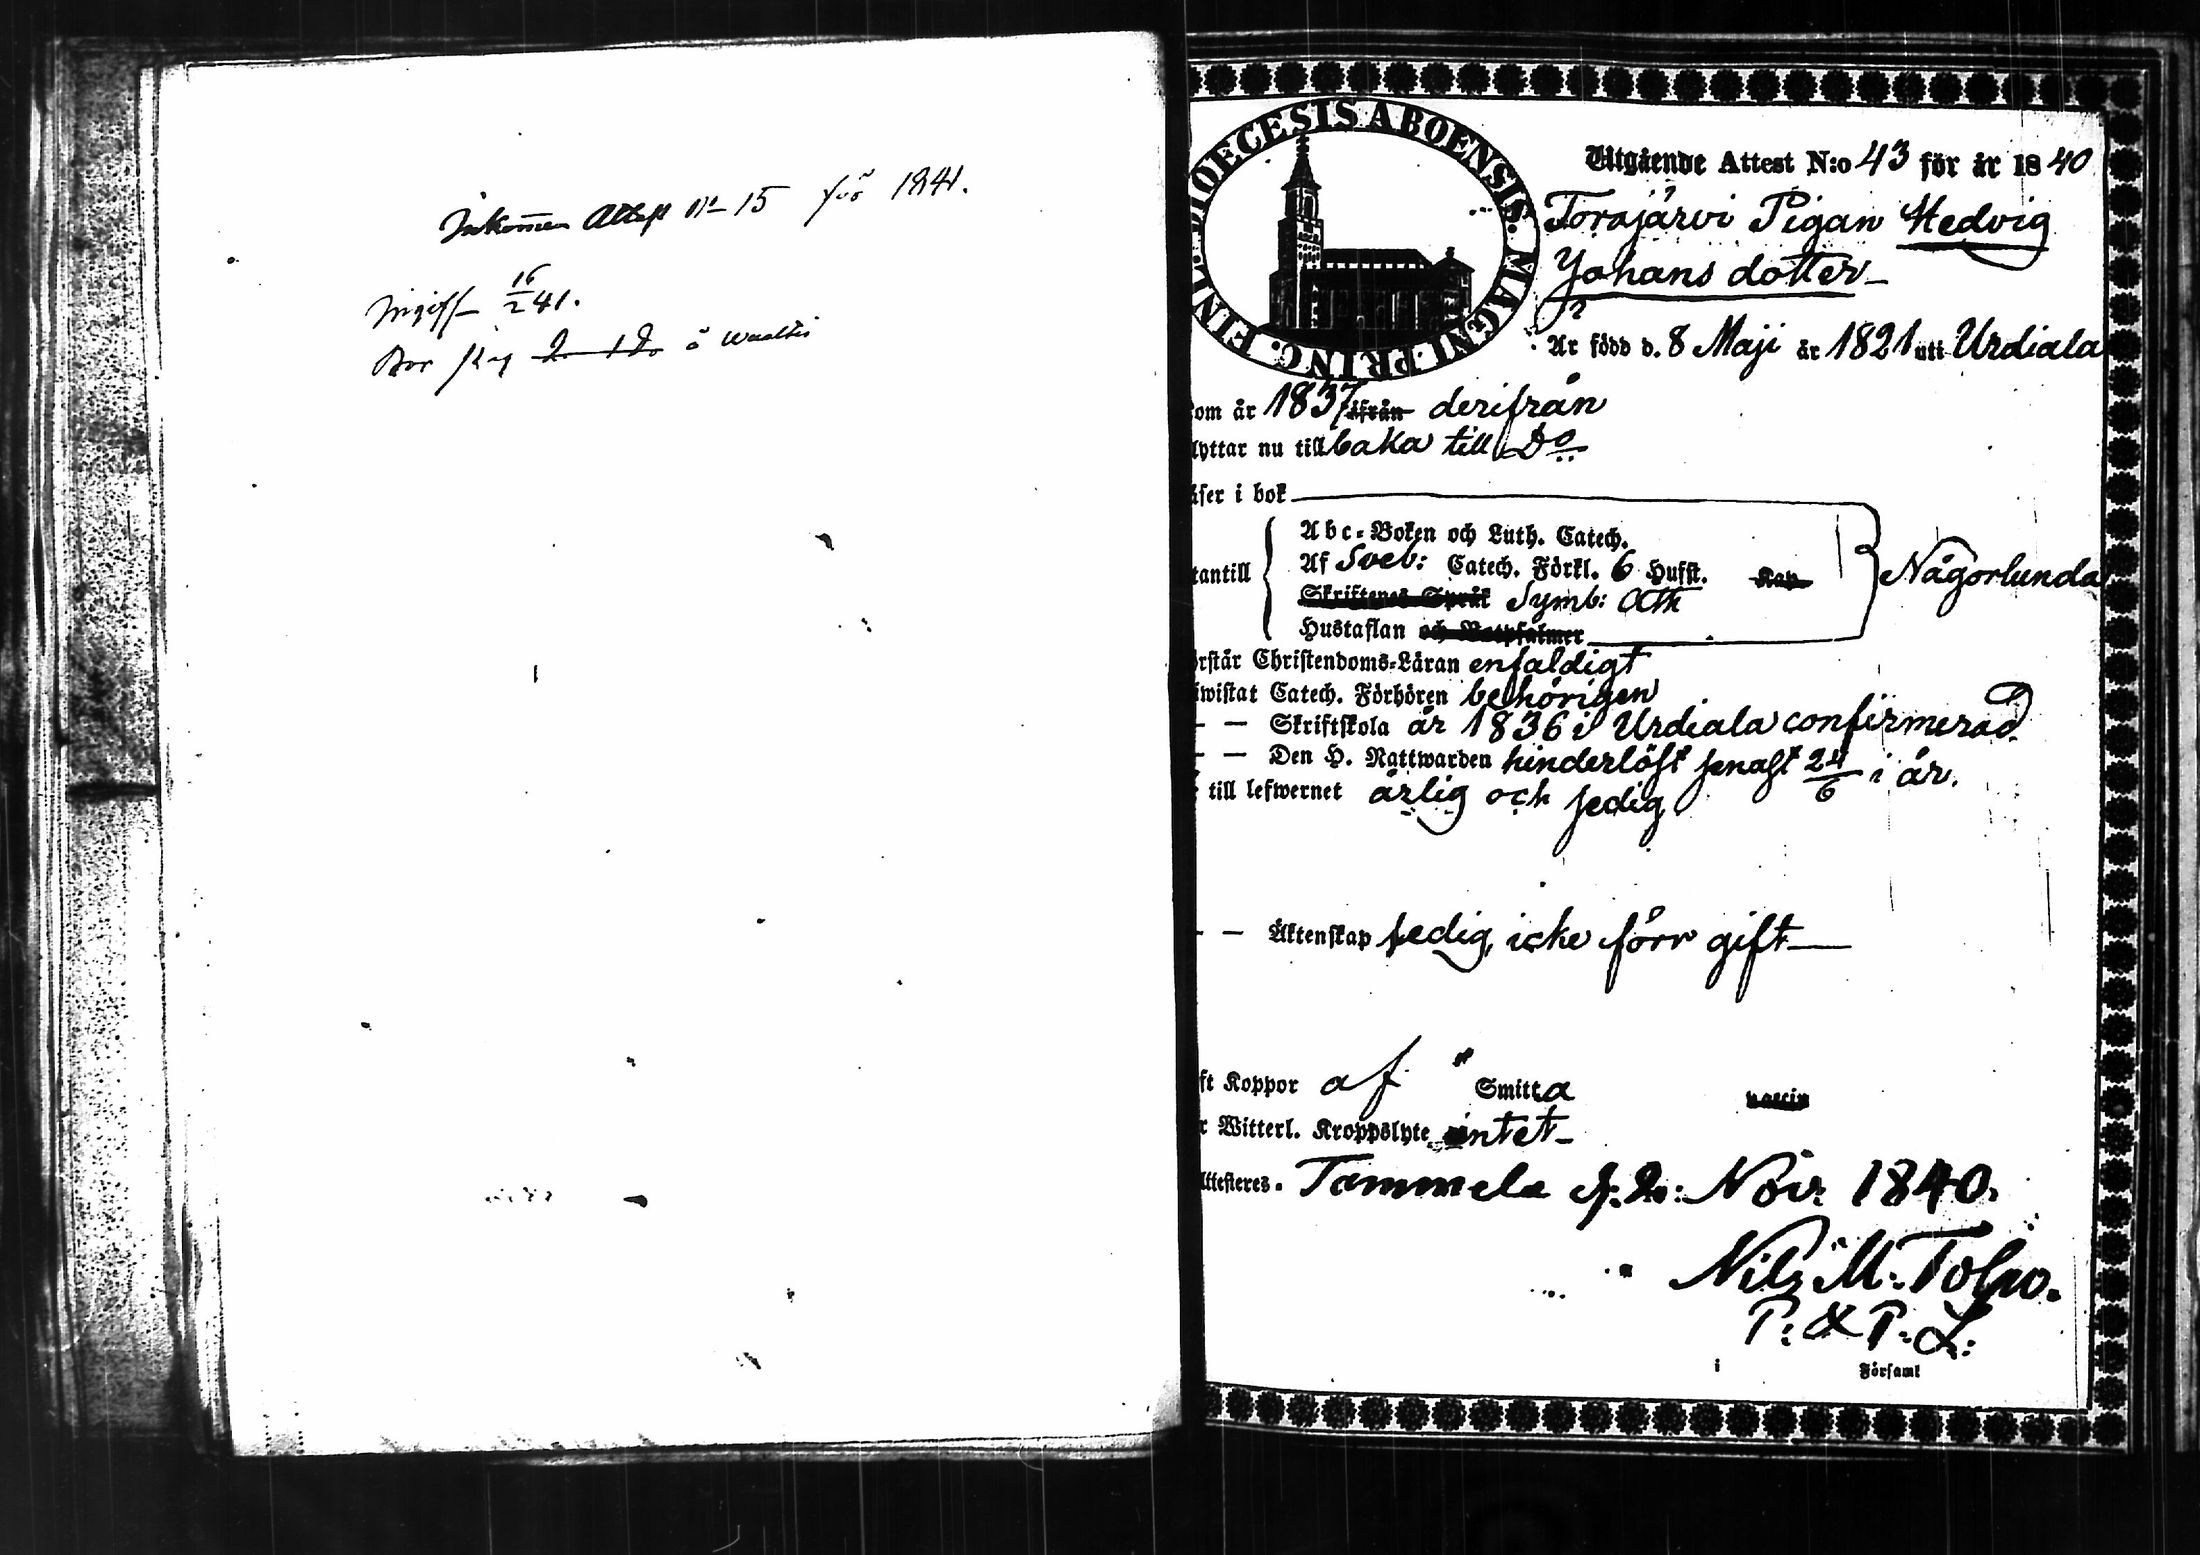 Inkommen Attest No 15 för 1841.
16
2 41.
Bor
DIOECESIS ABOENSIS. MAGNI. PRINC. FINL.
Utgående Attest N:o 43 för år 1840
Torajärvi Pigan Hedvig
Johans dotter
Är född d. 8 Maji år 1821 uti Urdiala
kom år 1837 ifrån derifrån
lyttar nu tillbaka till Do
äser i bok
Abc-Boken och Luth. Catech.
tantill Af Sveb: Catech. Förkl. 6 Hufst. Kap Någorlunda
Skriftenes Språk Symb: Ath
Hustaflan och Botpsalmer
örstår Christendoms-Läran enfaldigt
iwistat Catech. Förhören behörigen
— — Skriftskola år 1836 i Urdiala confirmerad
— — Den H. Nattwarden hinderlöst senast 24/6 i år.
r till lefwernet ärlig och sedig
— — Äktenskap ledig, icke förr gift
ft Koppor af Smitta vaccin
r Witterl. Kroppslyte intet
Attesteras. Tammela d. 20: Nov: 1840.
Nils M. Tolpo.
P: & P. L:
i Församl